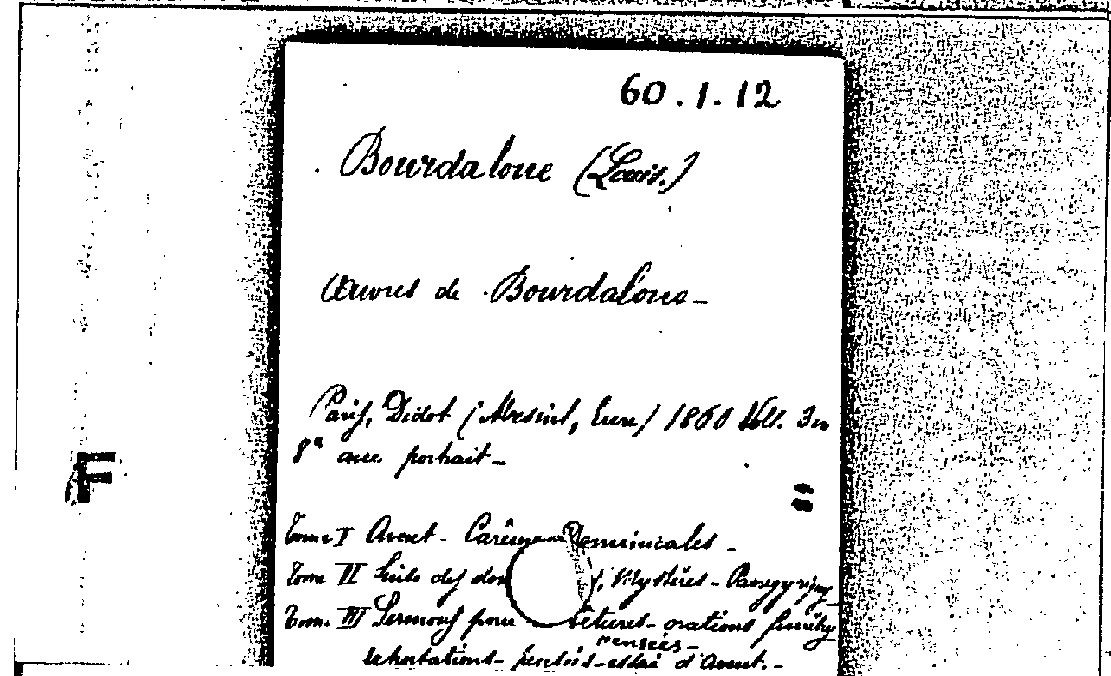 60.1.12
Bourdaloue (Louis.)
Œuvres de Bourdaloue_
Paris, Didot (Mesnil, Eure) 1860 Vol. 3 in
8° avec portrait_
F
Tome I Avent - Carême Dominicales _
Tome II Suite des dom ; Mystères - Panégyriques
Tome III Sermons pour vêtures - oraisons funèbres
exhortations - pensées - essai d'Avent. -
pensées -